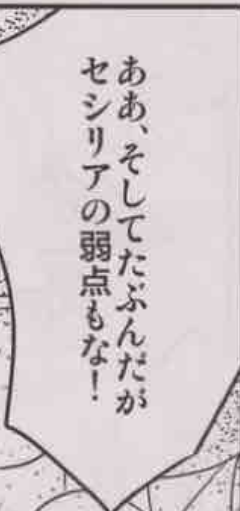 ああ、そしてたぶんだが
セシリアの弱点もな！